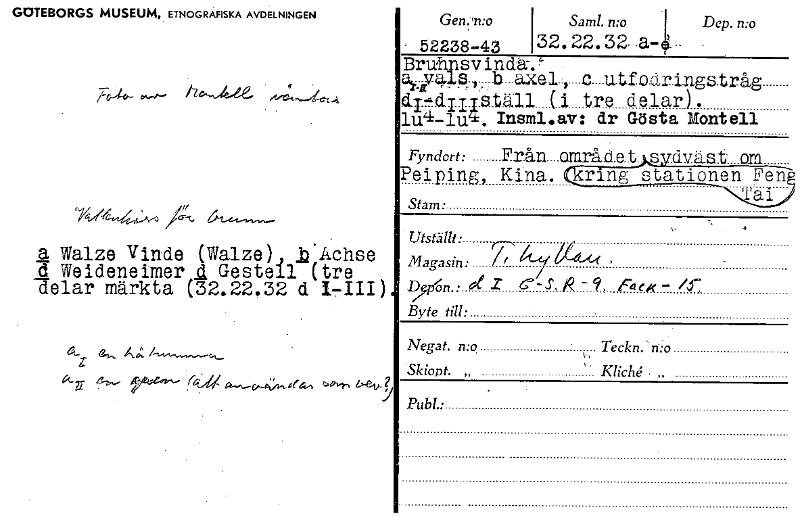 GÖTEBORGS MUSEUM, ETNOGRAFISKA AVDELNINGEN
Foto av Montell
för brunn
a Walze Vinde (Walze), b Achse
d Weideneimer d Gestell (tre
delar märkta (32.22.32 d I-III).
a I en
a II en (att användas som vev?)
Gen. n:o
52238-43
Saml. n:o
32.22.32 a-e
Dep. n:o
Bruhnsvinda.
a vals, b axel, c utfodringstråg
I-II
dI-dIIIställ (i tre delar).
1u4-1u4. Insml.av: dr Gösta Montell
Fyndort: Från området sydväst om
Peiping, Kina. (kring stationen Feng
Tai
Stam:
Utställt:
Magasin: T. hyllan.
Depon.: d I G-S R-9. Fack-15
Byte till:
Negat. n:o Teckn. n:o
Skiopt. „ Kliché „
Publ.: